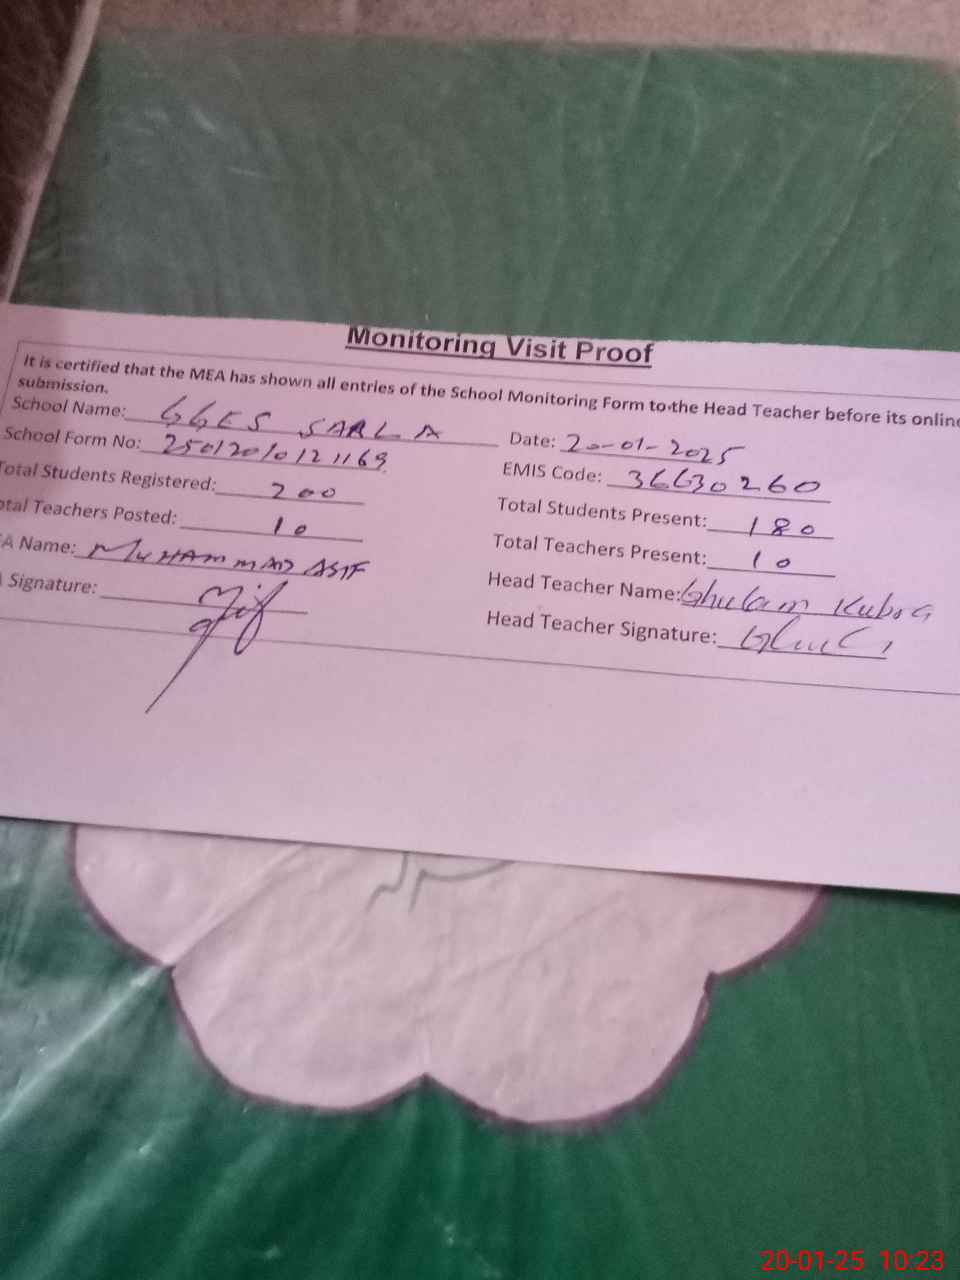 Monitoring Visit Proof
It is certified that the MEA has shown all entries of the School Monitoring Form to the Head Teacher before its online
submission.
School Name: GGES SARLA Date: 20-01-2025
School Form No: 2501201012 1169 EMIS Code: 36630260
Total Students Registered: 200 Total Students Present: 180
otal Teachers Posted: 10 Total Teachers Present: 10
EA Name: MUHAMMAD ASIF Head Teacher Name: Ghulam Kubra
Signature: Head Teacher Signature:
20-01-25 10:23